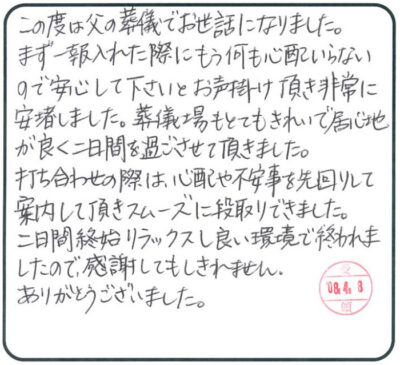 この度は父の葬儀でお世話になりました。
まず一報入れた際にもう何も心配いらない
ので安心して下さいとお声掛け頂き非常に
安堵しました。葬儀場もとてもきれいで居心地
が良く二日間を過ごさせて頂きました。
打ち合わせの際は、心配や不安事を先回りして
案内して頂きスムーズに段取りできました。
二日間終始リラックスし良い環境で終われま
したので、感謝してもしきれません。
ありがとうございました。